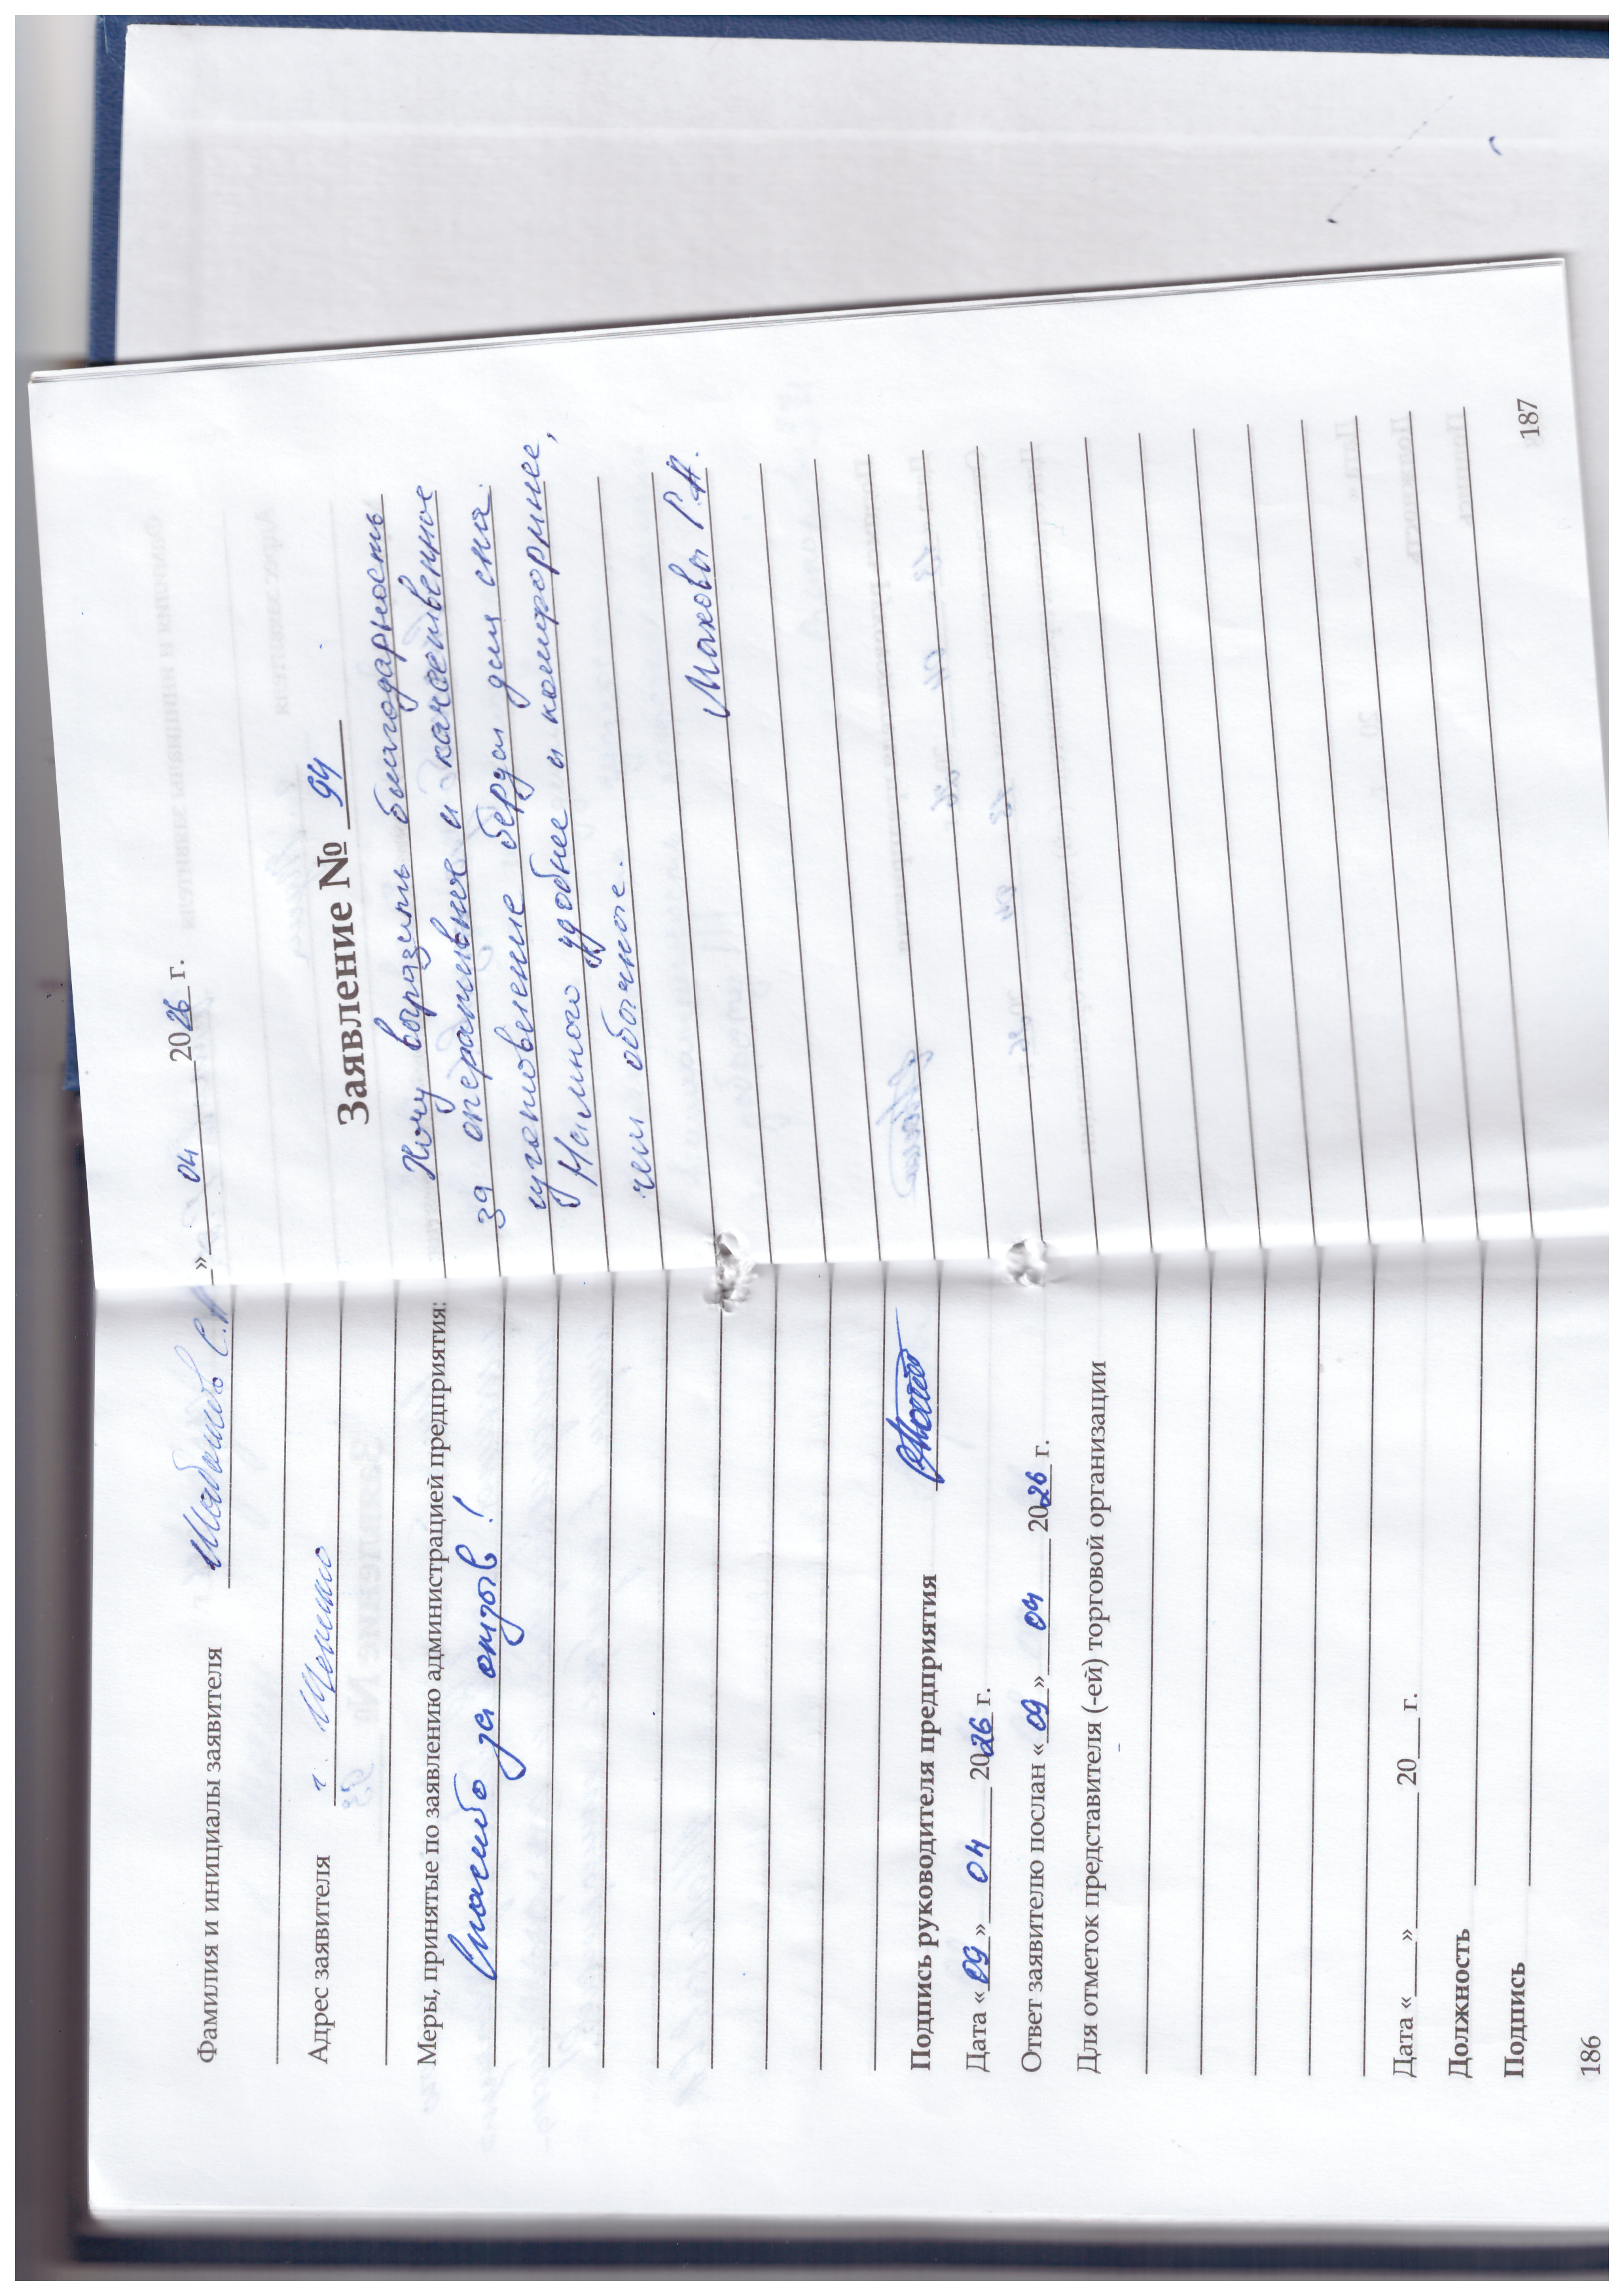 Фамилия и инициалы заявителя Шабашов С.А
Адрес заявителя г. Щекино
Меры, принятые по заявлению администрацией предприятия:
Спасибо за отзыв!
Подпись руководителя предприятия
Дата «09» 04 2026 г.
Ответ заявителю послан «09» 04 2026 г.
Для отметок представителя (-ей) торговой организации
Дата «___»________20___г.
Должность
Подпись
186
» 04 2026 г.
Заявление № 94
Хочу выразить благодарность
за оперативное и качественное
изготовление беруш для сна.
Намного удобнее и комфорнее,
чем обычные.
Махова Г.Н.
187